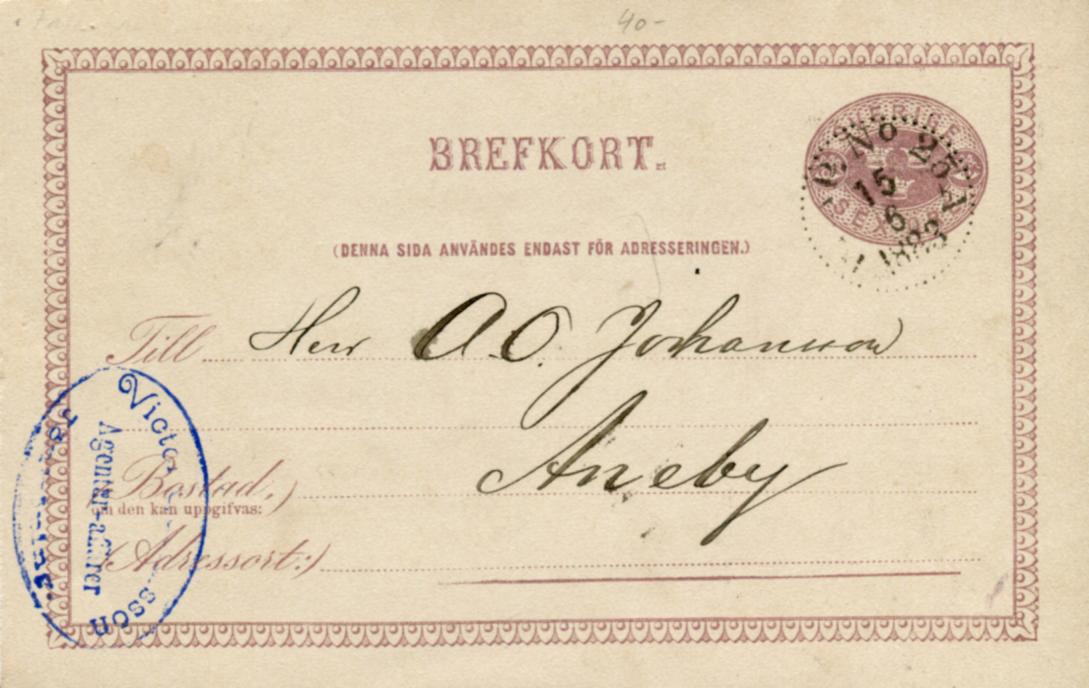 40-
BREFKORT.
SVERIGE
SEX ÖRE
No 25
15
6
1883
(DENNA SIDA ANVÄNDES ENDAST FÖR ADRESSERINGEN.)
Till Herr A.O. Johansson
Aneby
(Bostad,)
om den kan uppgifvas:
(Adressort:)
Agentur-affärer